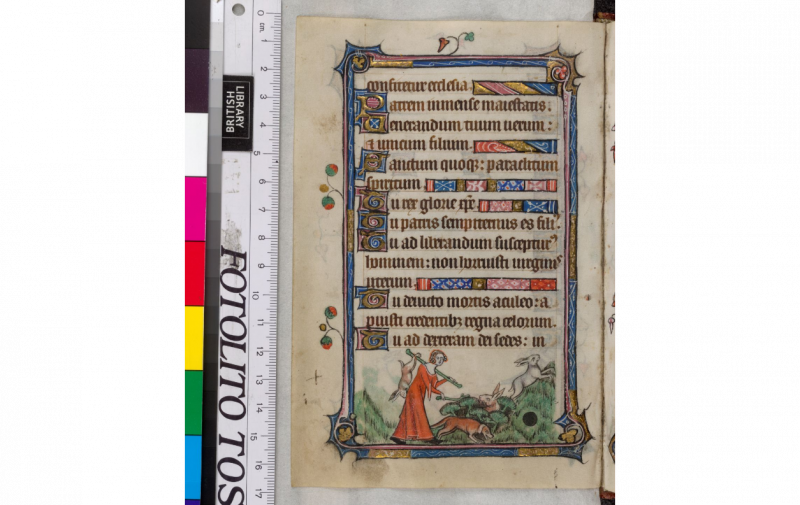 confitetur ecclesia
Patrem inmense maiestatis:
Uenerandum tuum uerum:
& unicum filium.
Sanctum quoq;: paraclitum
spiritum.
Tu rex glorie xpe.
Tu patris sempiternus es fili'.
Tu ad liberandum suscepturꝰ
hominem: non horruisti uirginis
uterum.
Tu deuicto mortis aculeo: a
puisti credentibꝫ regna celorum.
Tu ad dexteram dei sedes: in
BRITISH
LIBRARY
FOTOLITO TOS
0 cm.
1
2
3
4
5
6
7
8
9
10
11
12
13
14
15
16
17